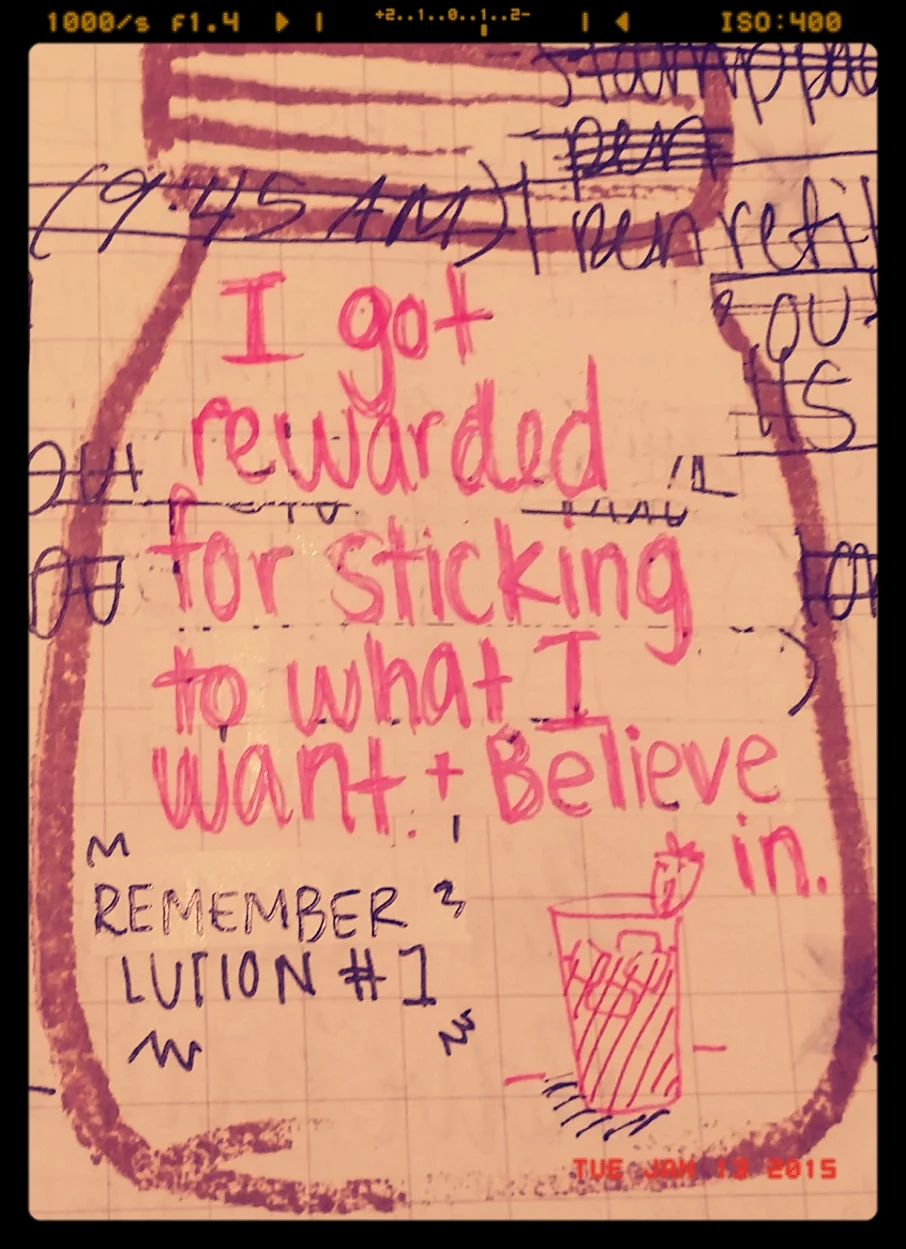 1000/s F1.4 +2..1..0..1..2- ISO:400
pen
(9:45 AM) pen refil
I got
rewarded
for sticking
to what I
want. + Believe
in.
REMEMBER
LUTION #1
TUE JAN 13 2015